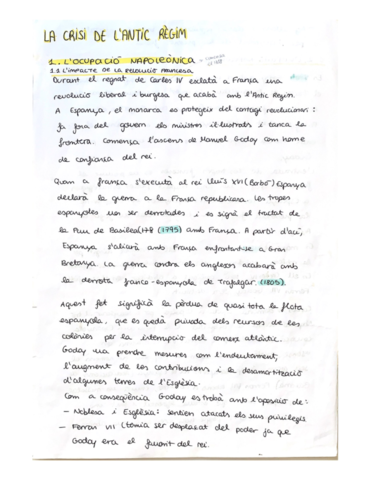 LA CRISI DE L'ANTIC RÈGIM
1. L'OCUPACIÓ NAPOLEÒNICA
1.1 L'IMPACTE DE LA REVOLUCIÓ FRANCESA
Durant el regnat de Carles IV esclatà a França una
revolució liberal i burgesa que acabà amb l'Antic Règim.
A Espanya, el monarca es protegeix del contagi revolucionari:
fa fora del govern els ministres il·lustrats i tanca la
frontera. Comença l'ascens de Manuel Godoy com home
de confiança del rei.
Quan a frança s'executà al rei Lluís XVI (Borbó) Espanya
declarà la guerra a la França republicana. Les tropes
espanyoles van ser derrotades i es signà el tractat de
la Pau de Basilea (1795) amb França. A partir d'ací,
Espanya s'aliarà amb França enfrontant-se a Gran
Bretanya. La guerra contra els anglesos acabarà amb
la derrota franco-espanyola de Trafalgar. (1805).
Aquest fet significà la pèrdua de quasi tota la flota
espanyola, que es quedà privada dels recursos de les
colònies per la interrupció del comerç atlàntic.
Goday va prendre mesures com l'endeutament,
l'augment de les contribucions i la desamortització
d'algunes terres de l'Església.
Com a conseqüència Goday es trobà amb l'oposició de:
- Noblesa i Església: sentien atacats els seus privilegis
- Ferran VII (temia ser desplaçat del poder ja que
Goday era el favorit del rei.